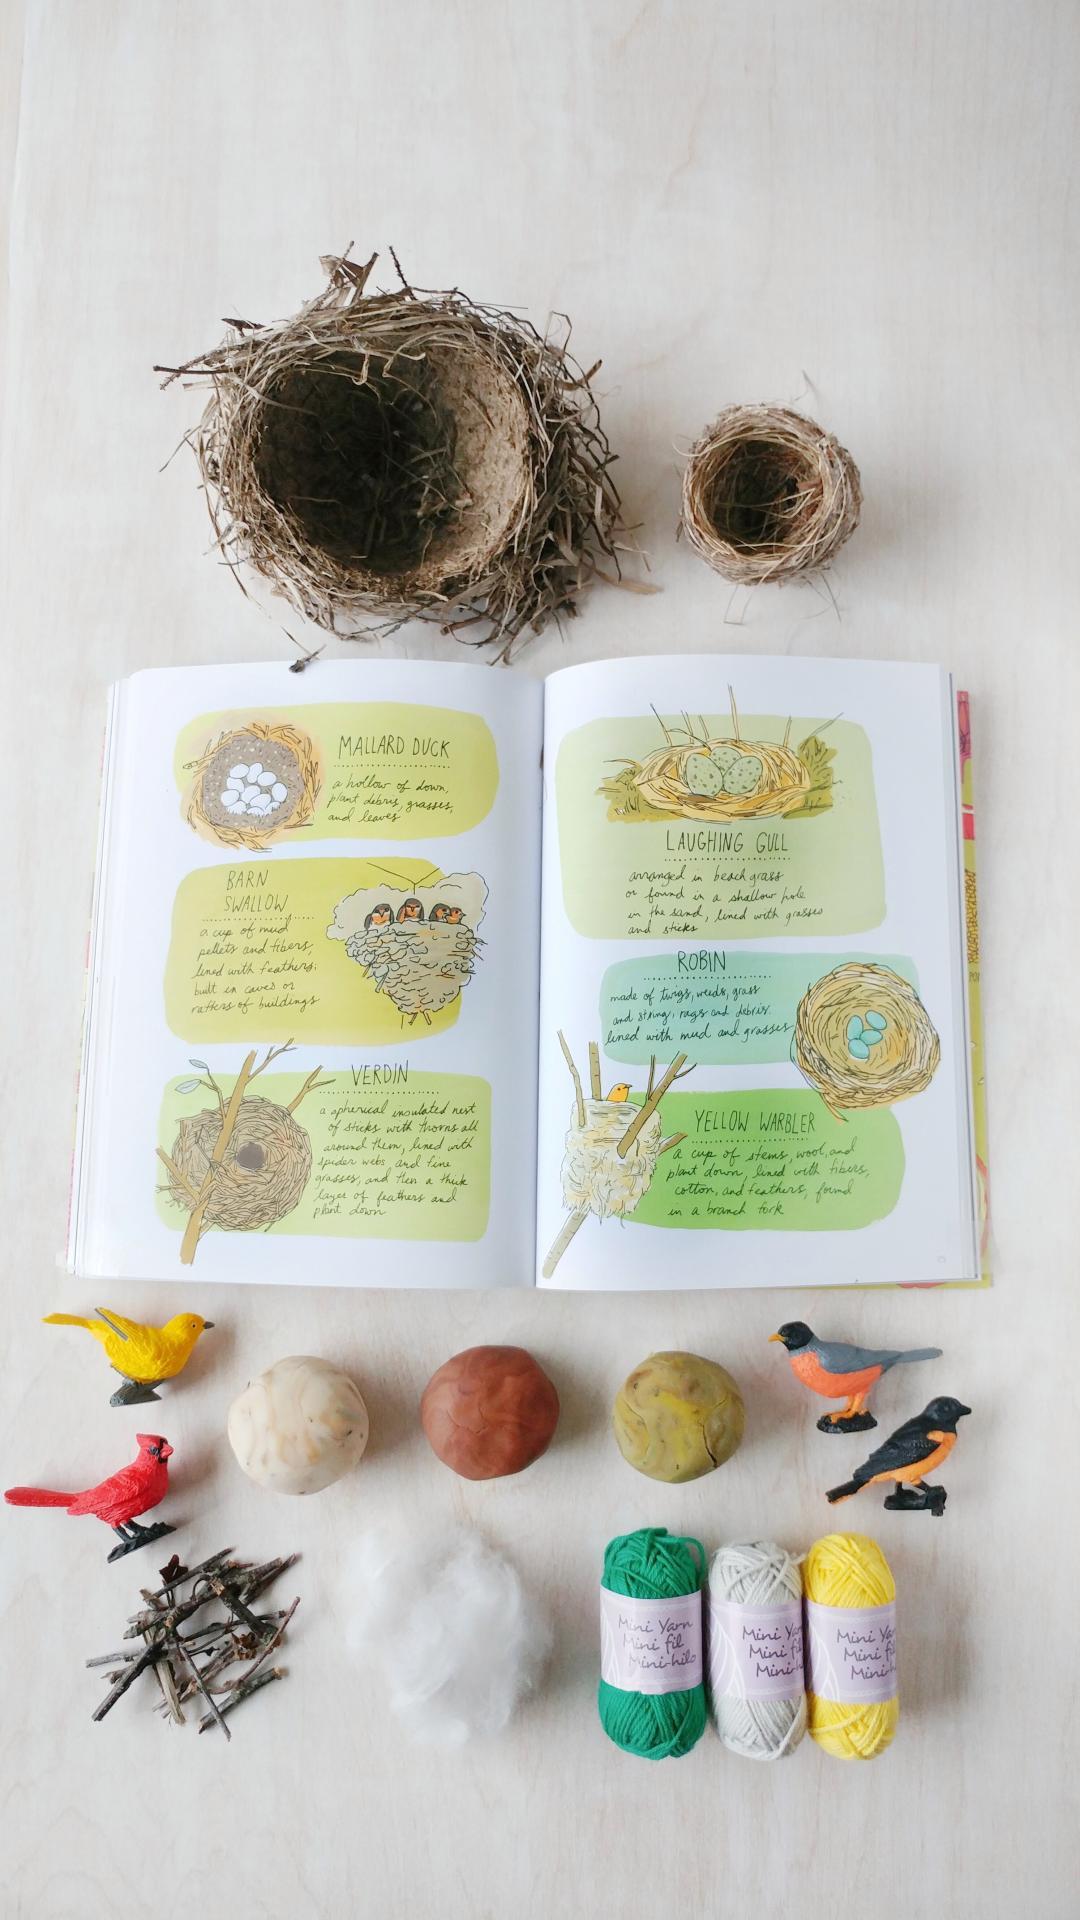 MALLARD DUCK
a hollow of down,
plant debris, grasses,
and leaves
BARN
SWALLOW
a cup of mud
pellets and fibers,
lined with feathers;
built in caves or
rafters of buildings
VERDIN
a spherical insulated nest
of sticks with thorns all
around them, lined with
spider webs and fine
grasses, and then a thick
layer of feathers and
plant down
LAUGHING GULL
arranged in beach grass
or found in a shallow hole
in the sand, lined with grasses
and sticks
ROBIN
made of twigs, weeds, grass
and string, rags and debris.
lined with mud and grasses
YELLOW WARBLER
a cup of stems, wool, and
plant down, lined with fibers,
cotton, and feathers, found
in a branch fork
Mini Yarn
Mini fil
Mini-hilo
Mini Yarn
Mini fil
Mini-h
Mini Yar
Mini fil
Mini-hi